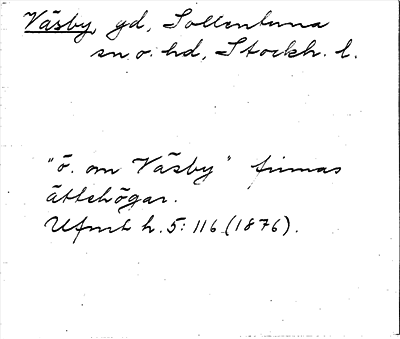 Väsby, gd, Sollentuna
sn o. hd, Stockh. l.
"ö. om Väsby" finnas
ättehögar.
Ufmt h. 5: 116 (1876).